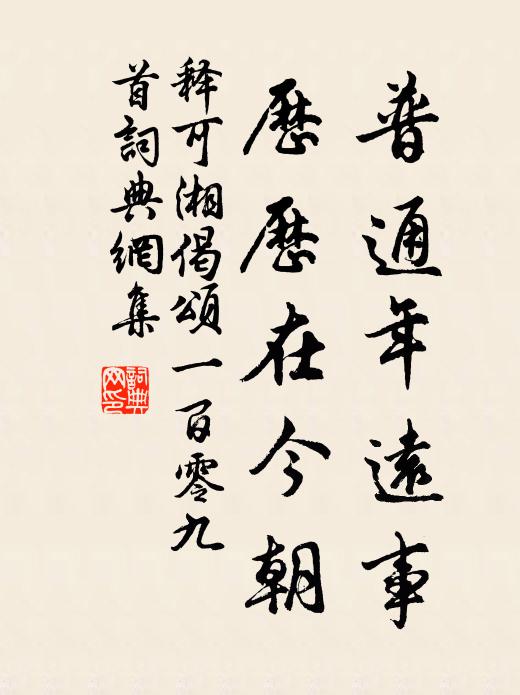 普通年遠事
歷歷在今朝
释可湘偈頌一百零九
首詞典網集
詞典網印